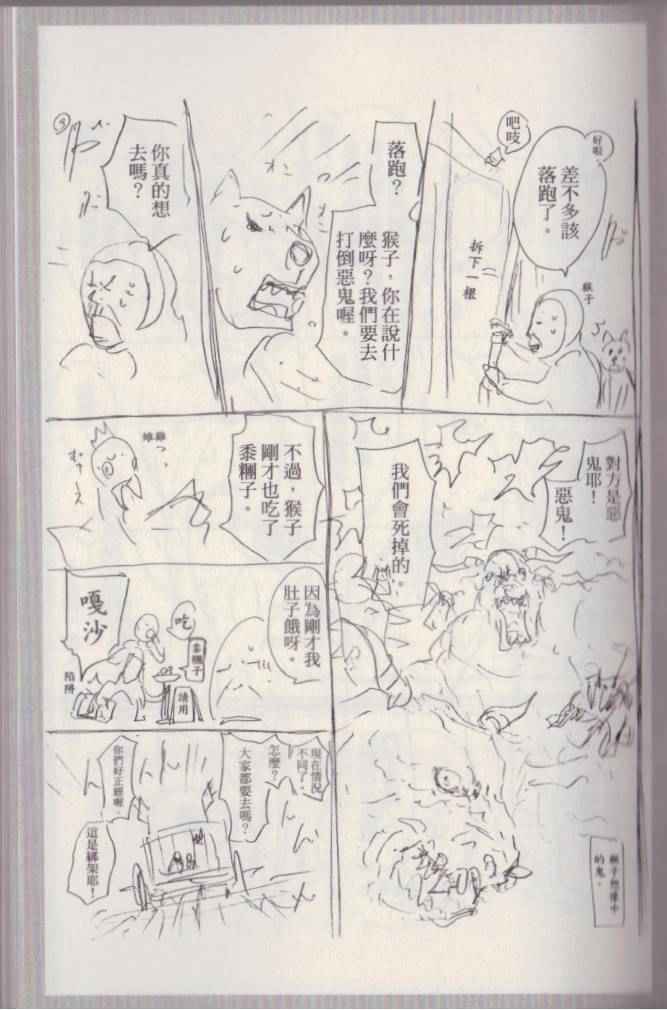 好啦、
差不多該
落跑了。
吧吱
拆下一根
猴子
落跑？
猴子，你在說什
麼呀？我們要去
打倒惡鬼喔。
你真的想
去嗎？
對方是惡
鬼耶！
惡鬼！
我們會死掉的。
猴子想像中
的鬼。
不過，猴子
剛才也吃了
黍糰子。
雉雞
むしゃえ
因為剛才我
肚子餓呀。
吃
黍糰子
請用
嘎沙
陷阱
現在情況
不同了。
怎麼？
大家都要去嗎？
你們好正經喔。
這是綁架耶！